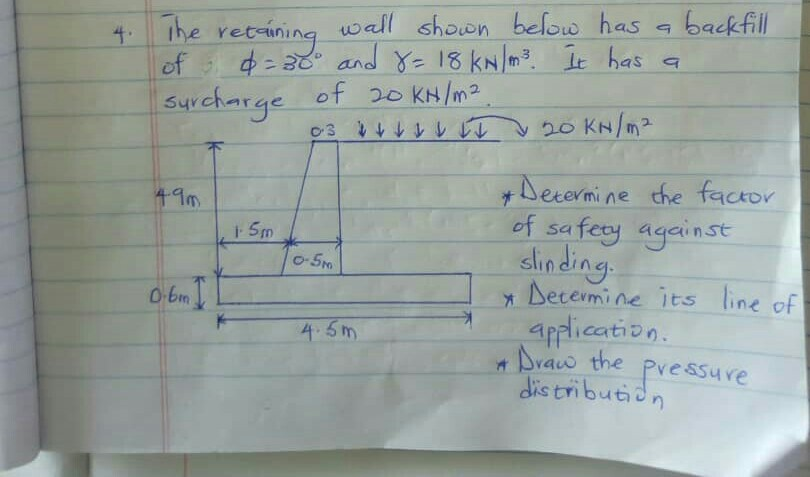 4. The retaining wall shown below has a backfill
of φ = 30° and γ = 18 KN/m³. It has a
surcharge of 20 KN/m².
0.3
20 KN/m²
4.9m
1.5m
0.5m
0.6m
4.5m
* Determine the factor
of safety against
slinding.
* Determine its line of
application.
* Draw the pressure
distribution